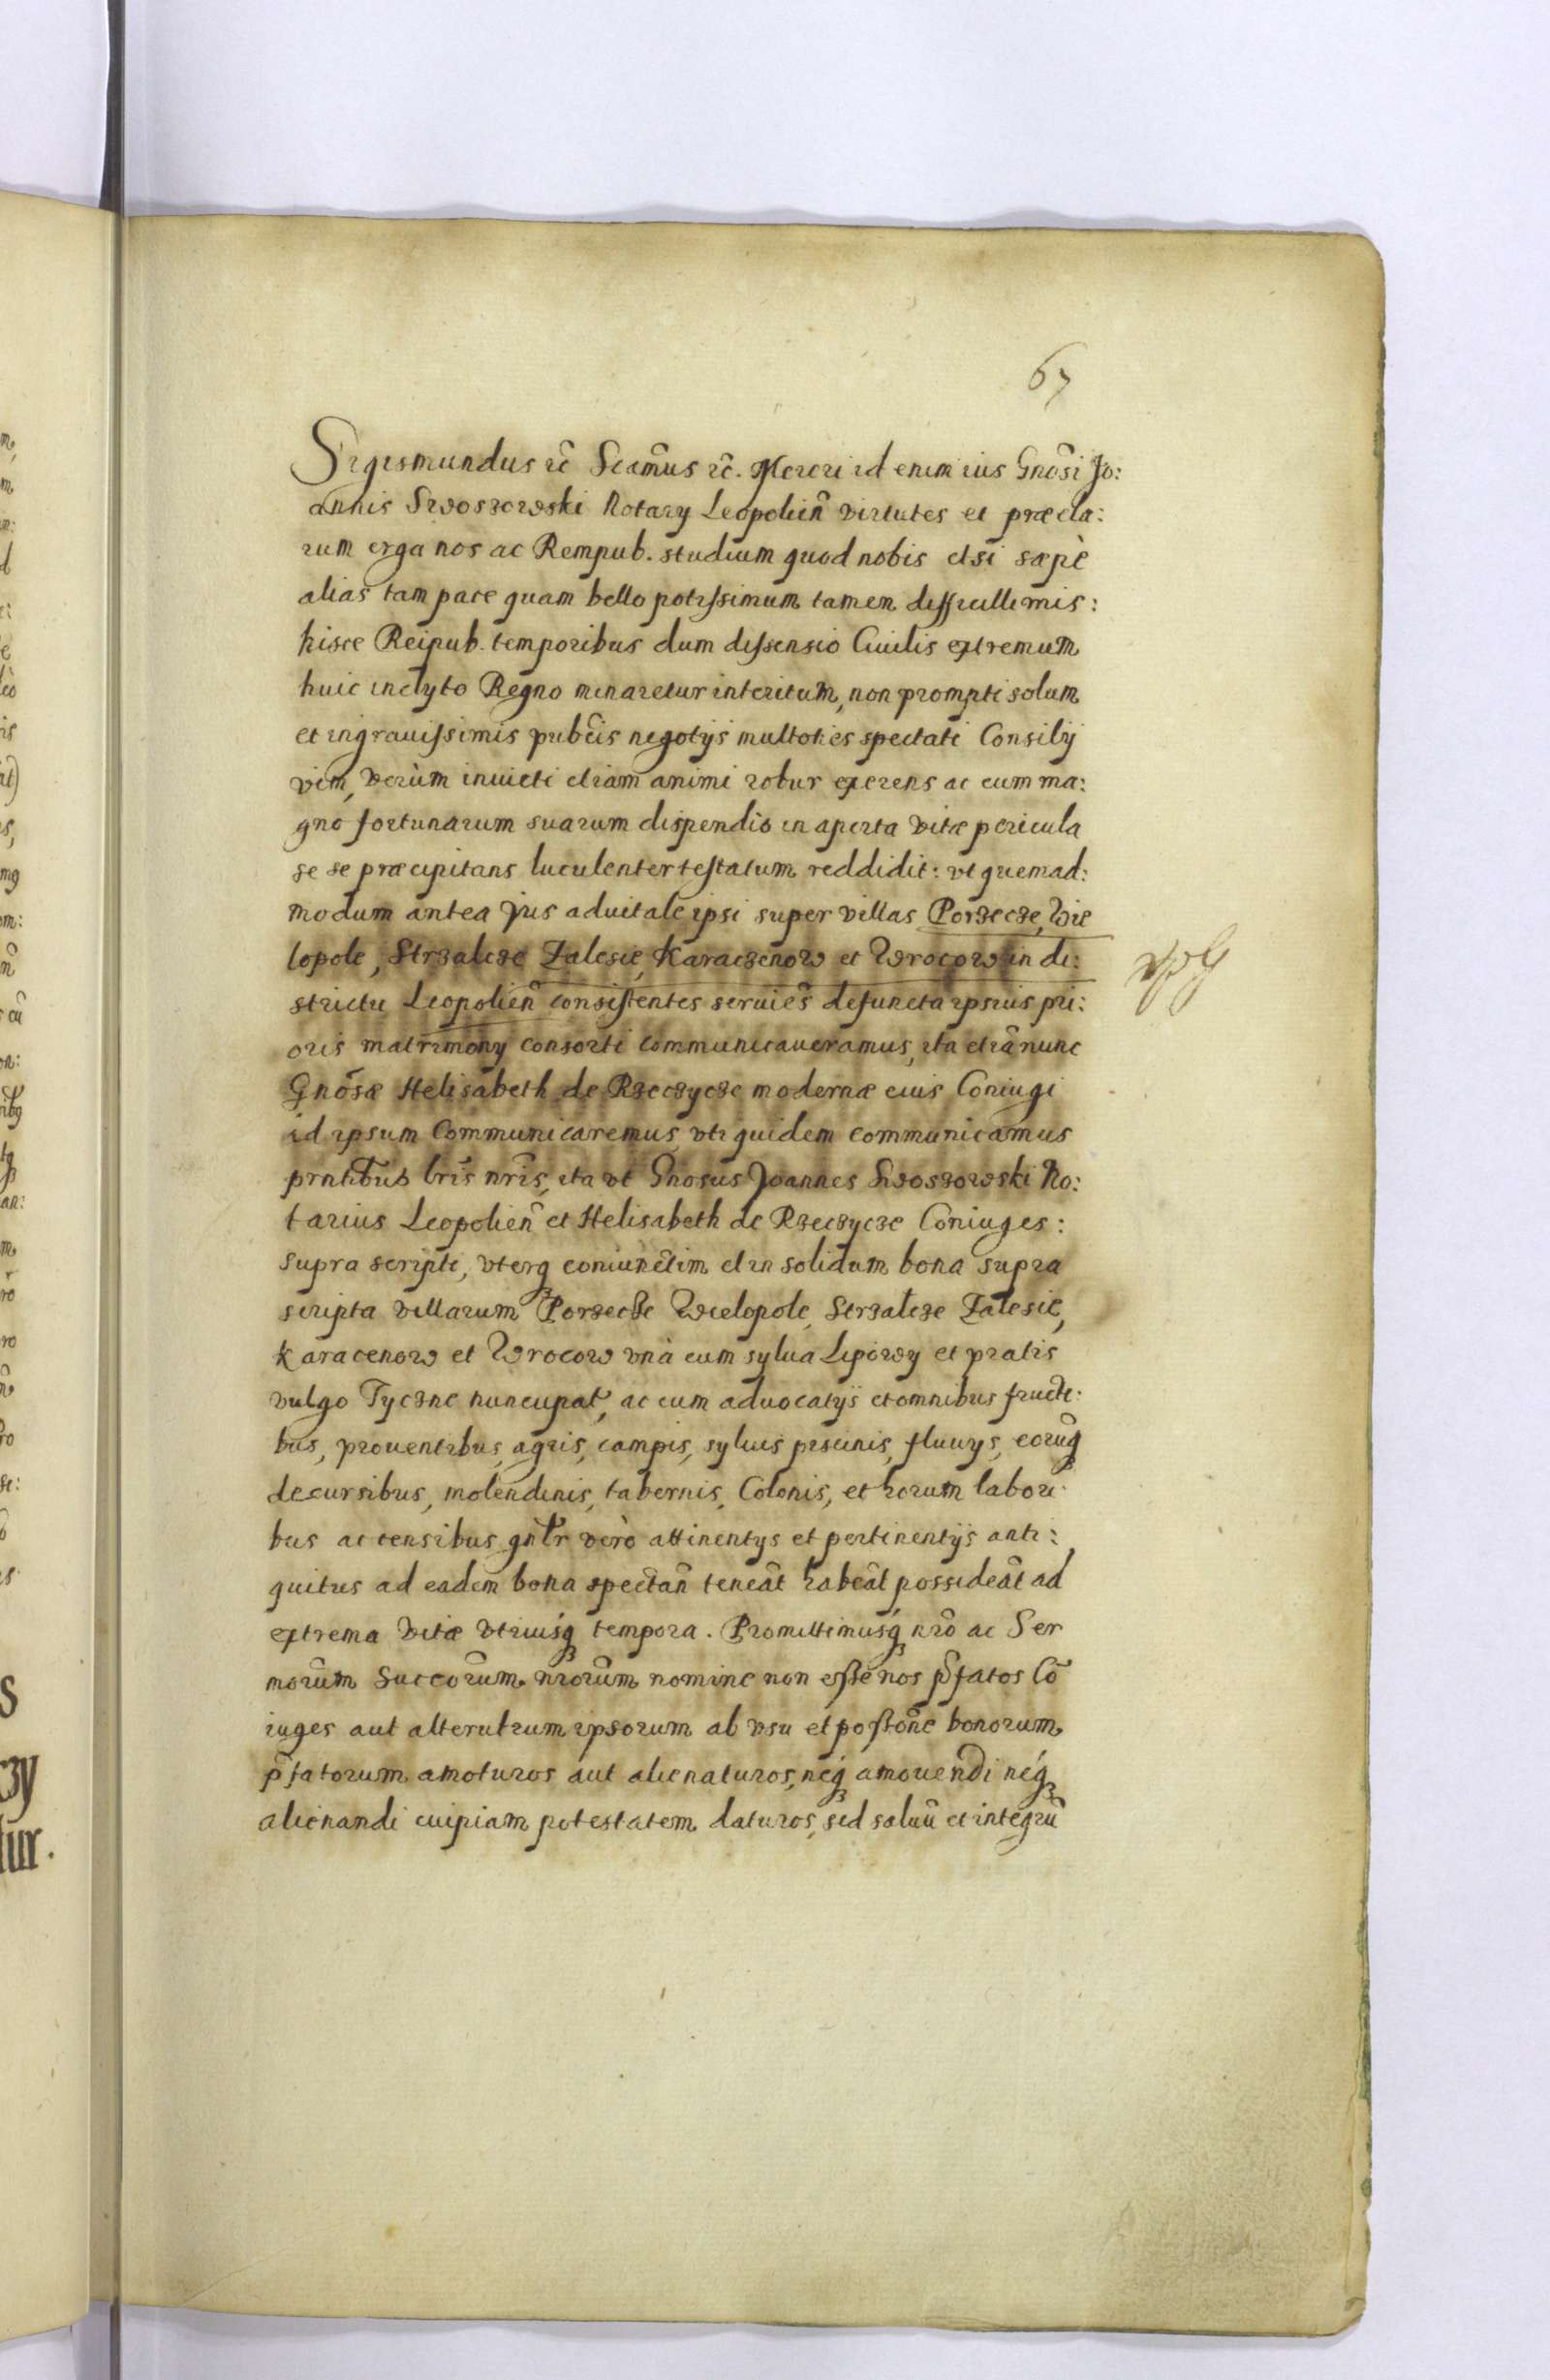 67
Sigismundus rc̃ Scãmus rc̃. Mereri id enim uis Gnõsi Jo:
annis Swoszowski Notarÿ Leopolien̄ virtutes et præcla:
rum erga nos ac Rempub. studium quod nobis etsi sæpè
alias tam pace quam bello potissimum tamen difficillimis:
hisce Reipub. temporibus dum dissensio Ciuilis extremum
huic inclyto Regno minaretur interitum, non prompti solum
et in grauissimis pubcis negotÿs multoties spectati Consilÿ
vim, verùm inuicti etiam animi robur exerens ac cum ma:
gno fortunarum suarum dispendio in aperta vitæ pericula
se se præcipitans luculenter testatum reddidit: vt quemad:
modum antea jus aduitale ipsi super villas Porzecze, Wie
lopole, Strzalcze Zalesie, Karaczenow et Wrocow in di:
strictu Leopolien̄ consistentes seruien̄s defuncta ipsius pri:
oris matrimonÿ consorti communicaueramus, ita etiā nunc
Gnõsæ Helisabeth de Rzeczycze modernæ eius Coniugi
id ipsum Communicaremus vti quidem communicamus
prntibus lrīs nrīs, ita vt Gnosus Joannes Swoszowski No:
tarius Leopolien̄ et Helisabeth de Rzeczycze Coniuges:
supra scripti, vterq coniunctim et in solidum bona supra
scripta villarum Porzecze Wielopole, Strzalcze Zalesie,
Karacenow et Wrocow vnà cum sylua Lipowy et pratis
vulgo Tyczne nuncupat, ac cum aduocatÿs et omnibus fructi:
bus, prouentibus, agris, campis, syluis piscinis, fluuÿs, eorūq
decursibus, molendinis, tabernis, Colonis, et horum labori
bus ac censibus gnlr verò attinentÿs et pertinentÿs anti:
quitus ad eadem bona spectan̄ teneāt habeāt possideāt ad
extrema vitæ vtriusq tempora. Promittimusq nrō ac Ser
morūm Succorūm nrorūm nomine non esse nos p̄fatos Cō
iuges aut alterutrum ipsorum ab vsu et possiōne bonorum
p̄fatorum amoturos aut alienaturos, neq amouendi neq
alienandi cuipiam potestatem daturos, sed saluū et integrū